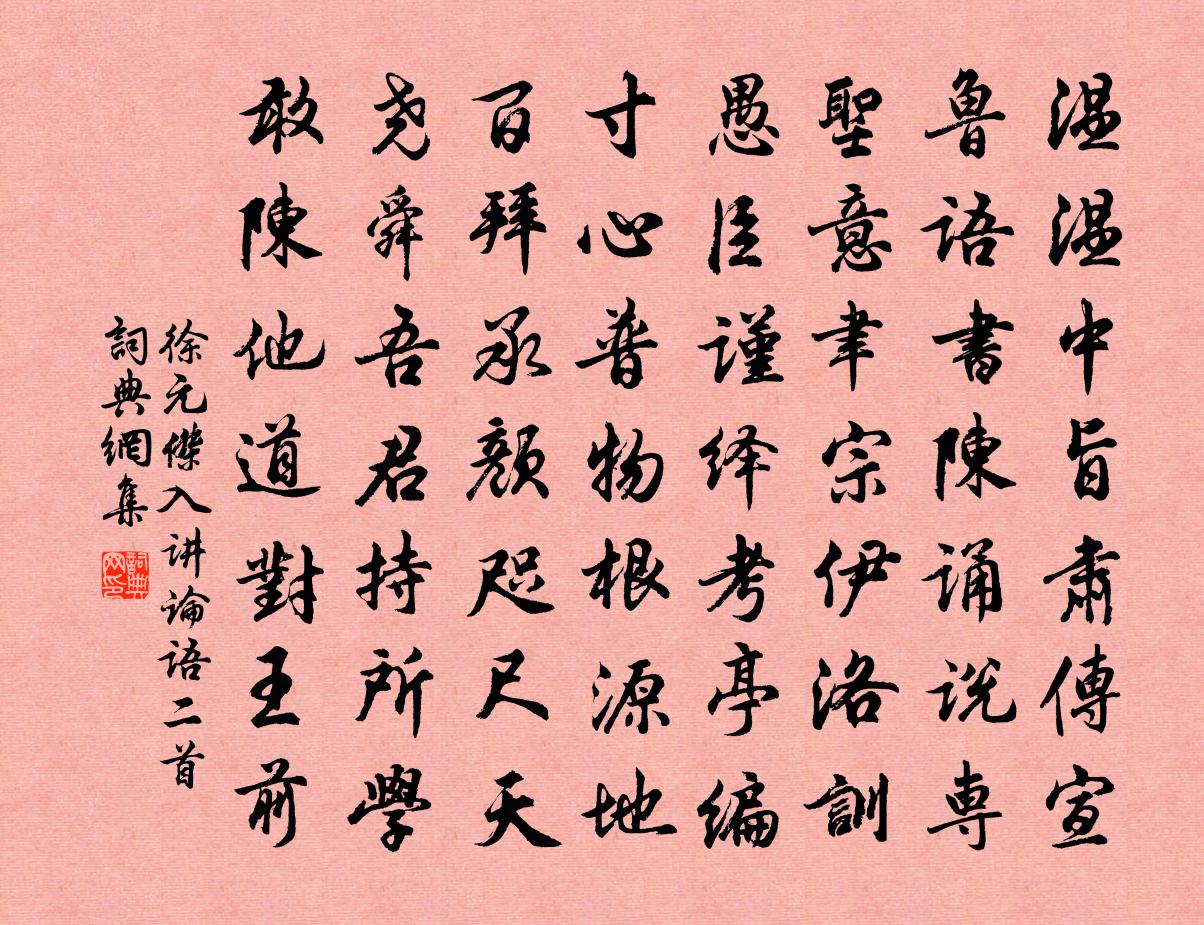 温温中旨肅傳宣
魯語書陳誦説専
聖意聿宗伊洛訓
愚臣謹绎考亭編
寸心普物根源地
百拜承顔咫尺天
尧舜吾君持所學
敢陳他道對王前
徐元傑入讲論语二首
詞典網集
詞典网印